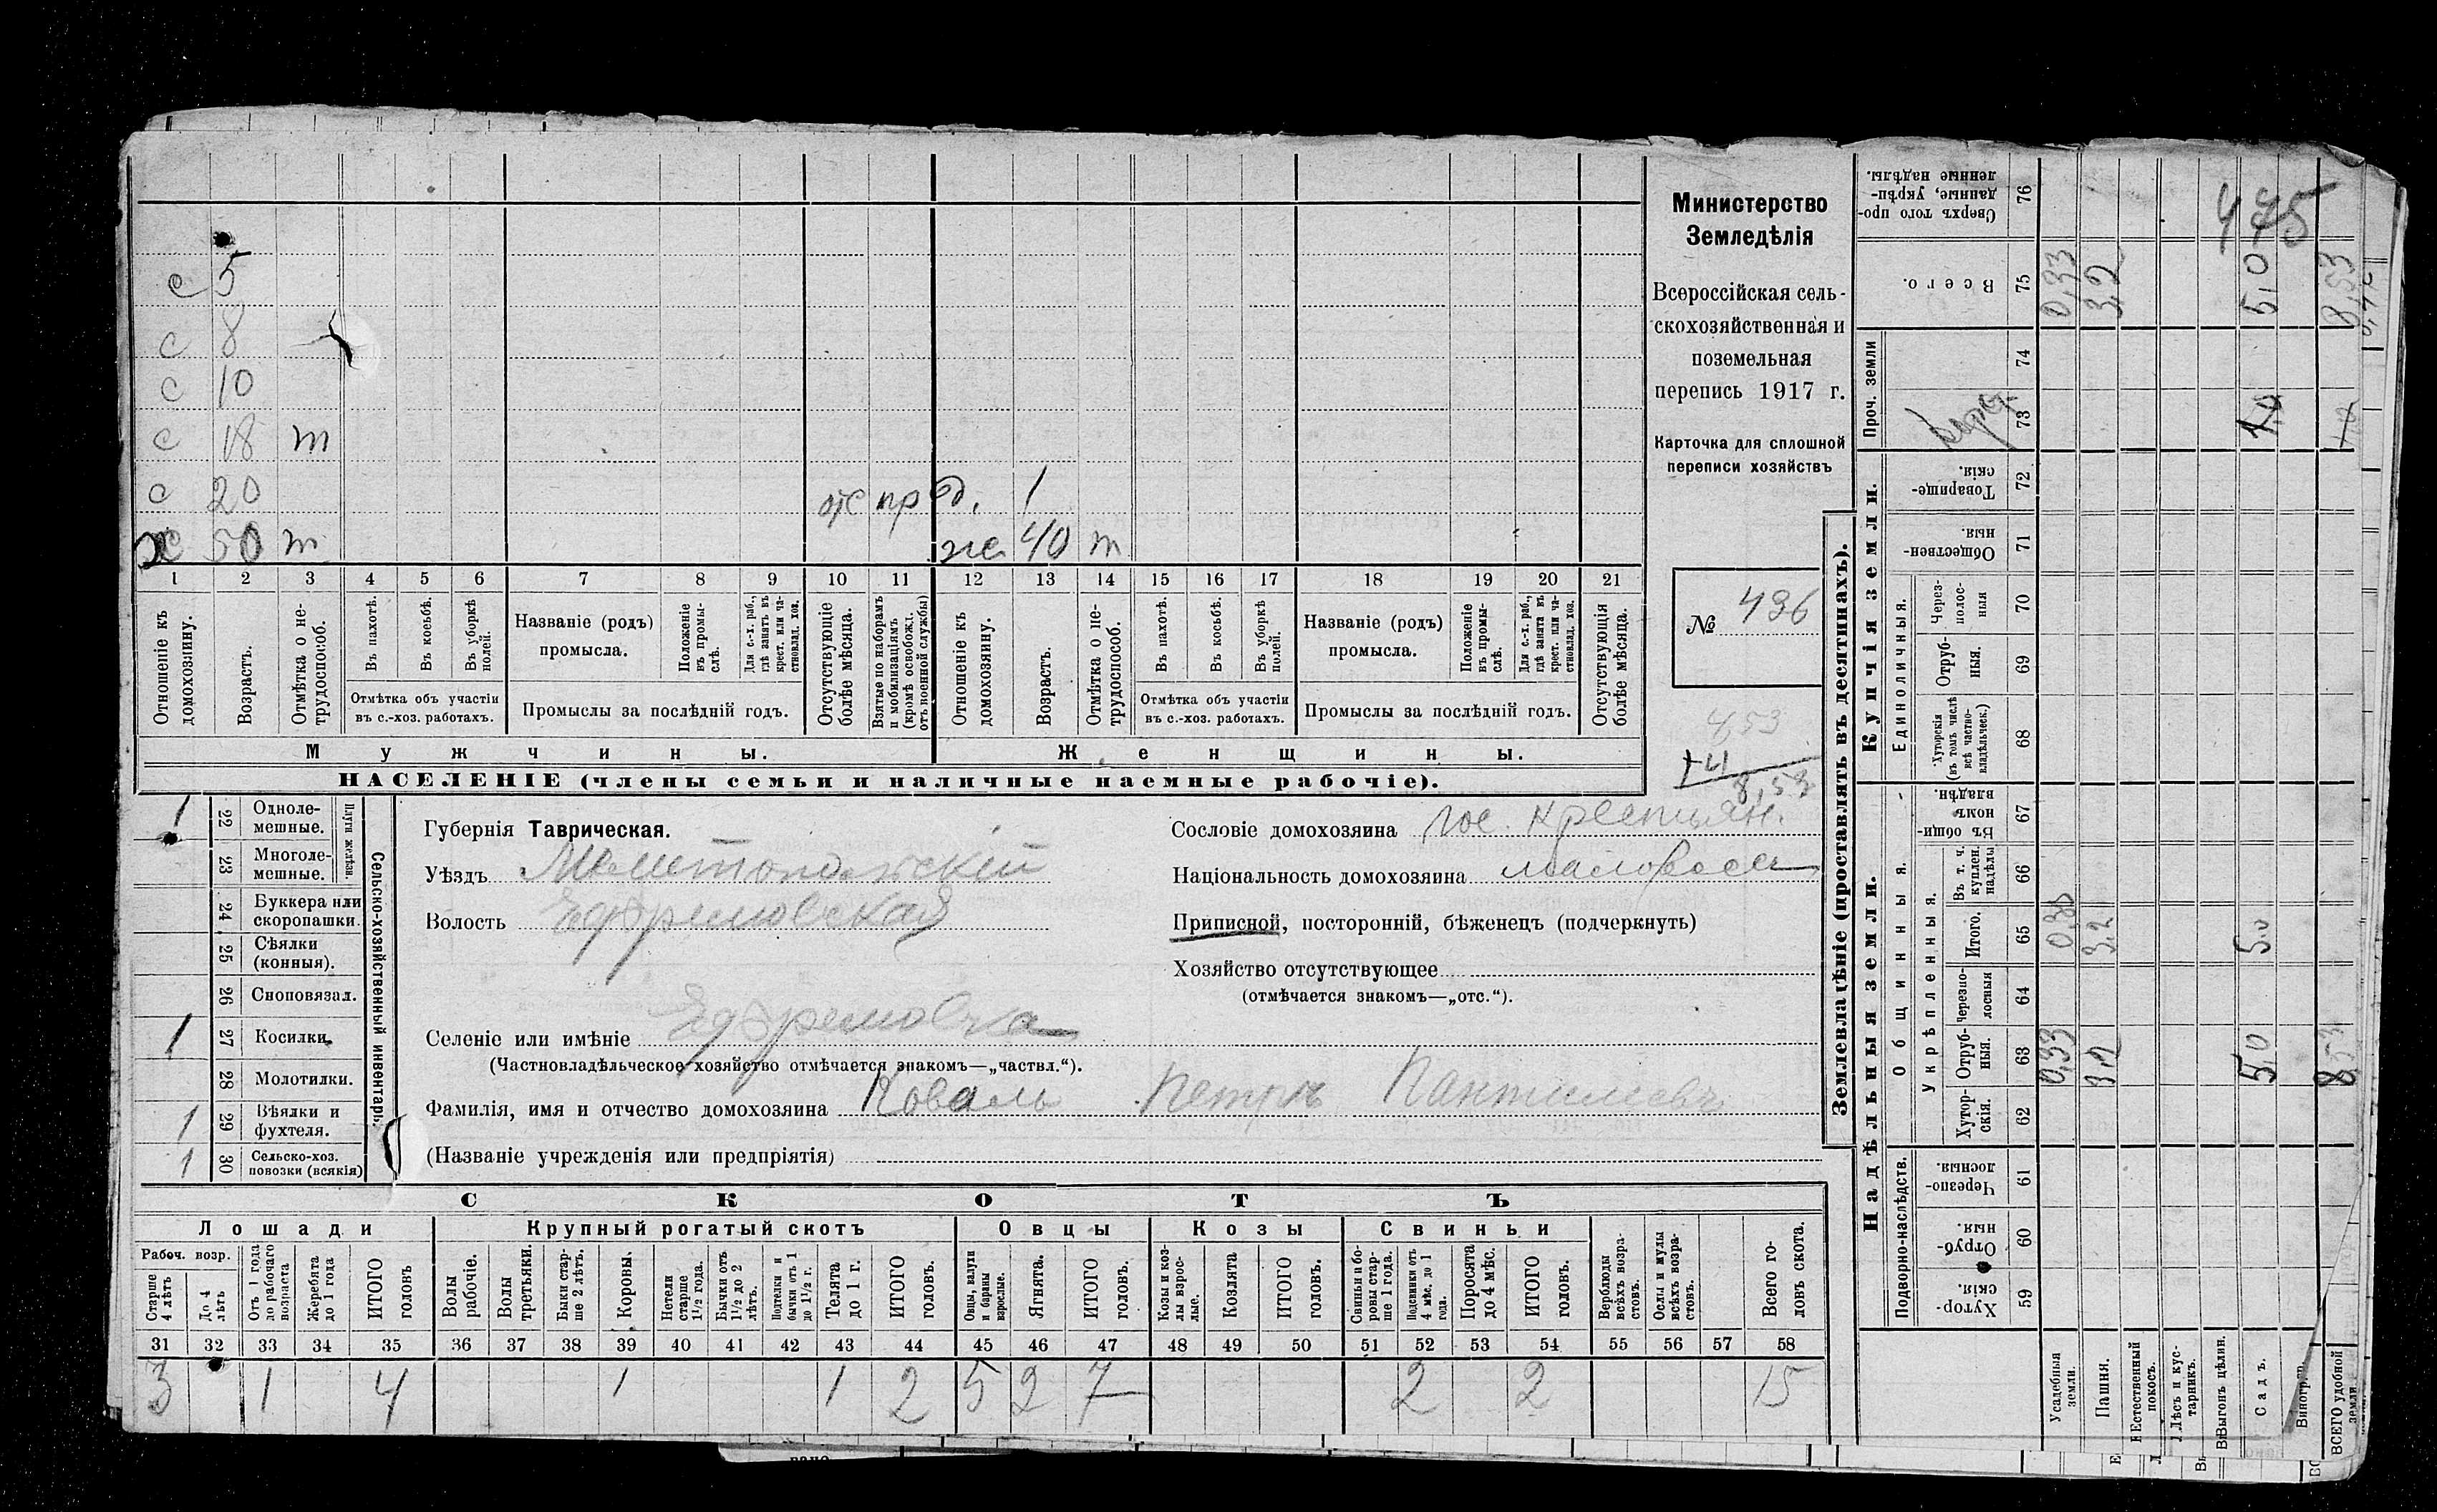 с 5
с 8
с 10
с 18 т
с 20 отс пр д. 1
х 50 т же 40 т
1 2 3 4 5 6 7 8 9 10 11 12 13 14 15 16 17 18 19 20 21
Отношеніе къ домохозяину.
Возрастъ.
Отмѣтка о нетрудоспособ.
Въ пахотѣ.
Въ косьбѣ.
Въ уборкѣ полей.
Отмѣтка объ участіи
въ с.-хоз. работахъ.
Названіе (родъ)
промысла.
Положеніе въ промыслѣ.
Для с.-х. раб., гдѣ занятъ въ крест. или частновлад. хоз.
Промыслы за послѣдній годъ.
Отсутствующіе болѣе мѣсяца.
Взятые по наборамъ и мобилизаціямъ (кромѣ освобожд. отъ военной службы)
Отношеніе къ домохозяину.
Возрастъ.
Отмѣтка о нетрудоспособ.
Въ пахотѣ.
Въ косьбѣ.
Въ уборкѣ полей.
Отмѣтка объ участіи
въ с.-хоз. работахъ.
Названіе (родъ)
промысла.
Положеніе въ промыслѣ.
Для с.-х. раб., гдѣ занята въ крест. или частновлад. хоз.
Промыслы за послѣдній годъ.
Отсутствующія болѣе мѣсяца.
Мужчины.
Женщины.
НАСЕЛЕНІЕ (члены семьи и наличные наемные рабочіе).
Министерство
Земледѣлія
Всероссійская сель-
скохозяйственная и
поземельная
перепись 1917 г.
Карточка для сплошной
переписи хозяйствъ
№ 496
4,53
+4
8,53
Сельско-хозяйственный инвентарь.
Плуги желѣзн.
1 22 Одноле-
мешные.
23 Многоле-
мешные.
24 Буккера или
скоропашки.
25 Сѣялки
(конныя).
26 Сноповязал.
1 27 Косилки.
28 Молотилки.
1 29 Вѣялки и
фухтеля.
1 30 Сельско-хоз.
повозки (всякія)
Губернія Таврическая.
Уѣздъ Мелитопольскій
Волость Ефремовская
Селеніе или имѣніе Ефремовка
(Частновладѣльческое хозяйство отмѣчается знакомъ—„частвл.“).
Фамилія, имя и отчество домохозяина Коваль Петръ
(Названіе учрежденія или предпріятія)
Сословіе домохозяина гос. крестьян.
Національность домохозяина малоросс
Приписной, посторонній, бѣженецъ (подчеркнуть)
Хозяйство отсутствующее
(отмѣчается знакомъ—„отс.“).
СКОТЪ
Лошади
Крупный рогатый скотъ
Овцы
Козы
Свиньи
Рабоч. возр.
Старше 4 лѣтъ
До 4 лѣтъ
Отъ 1 года до рабочаго возраста
Жеребята до 1 года
ИТОГО головъ
Волы рабочіе.
Волы третьяки.
Быки старше 2 лѣтъ.
Коровы.
Нетели старше 1½ года.
Бычки отъ 1½ до 2 лѣтъ.
Подтелки и бычки отъ 1 до 1½ г.
Телята до 1 г.
ИТОГО головъ.
Овцы, валухи и бараны взрослые.
Ягнята.
ИТОГО головъ.
Козы и козлы взрослые.
Козлята
ИТОГО головъ.
Свиньи и боровы старше 1 года.
Подсвинки отъ 4 мѣс. до 1 года.
Поросята до 4 мѣс.
ИТОГО головъ.
Верблюды всѣхъ возрастовъ.
Ослы и мулы всѣхъ возрастовъ.
Всего головъ скота.
31 32 33 34 35 36 37 38 39 40 41 42 43 44 45 46 47 48 49 50 51 52 53 54 55 56 57 58
3 1 4 1 1 2 5 2 7 2 2 15
Землевладѣніе (проставлять въ десятинахъ).
Купчія земли.
Надѣльныя земли.
Сверхъ того проданные, укрѣпленные надѣлы. 76 475
Всего. 75 0,33 3,2 5,0 8,53
Проч. земли
74
73
Товарищескія. 72
Общественныя. 71
Единоличныя.
Черезполосныя 70
Отрубныя. 69
Хуторскія (въ томъ числѣ всѣ частновладѣльческ.) 68
Общинныя.
Въ общинномъ владѣн. 67
Укрѣпленныя.
Въ т. ч. куплен. надѣлы 66
Итого. 65 3,2 5,0
Черезполосныя 64
Отрубныя. 63 0,33 3,2 5,0 8,53
Хуторскія. 62
Подворно-наслѣдств.
Черезполосныя. 61
Отрубныя. 60
Хуторскія. 59
Усадебныя земли.
Пашня.
Естественный покосъ.
Лѣсъ и кустарникъ.
Выгонъ цѣлин.
Садъ.
Виногр.
ВСЕГО удобной земли